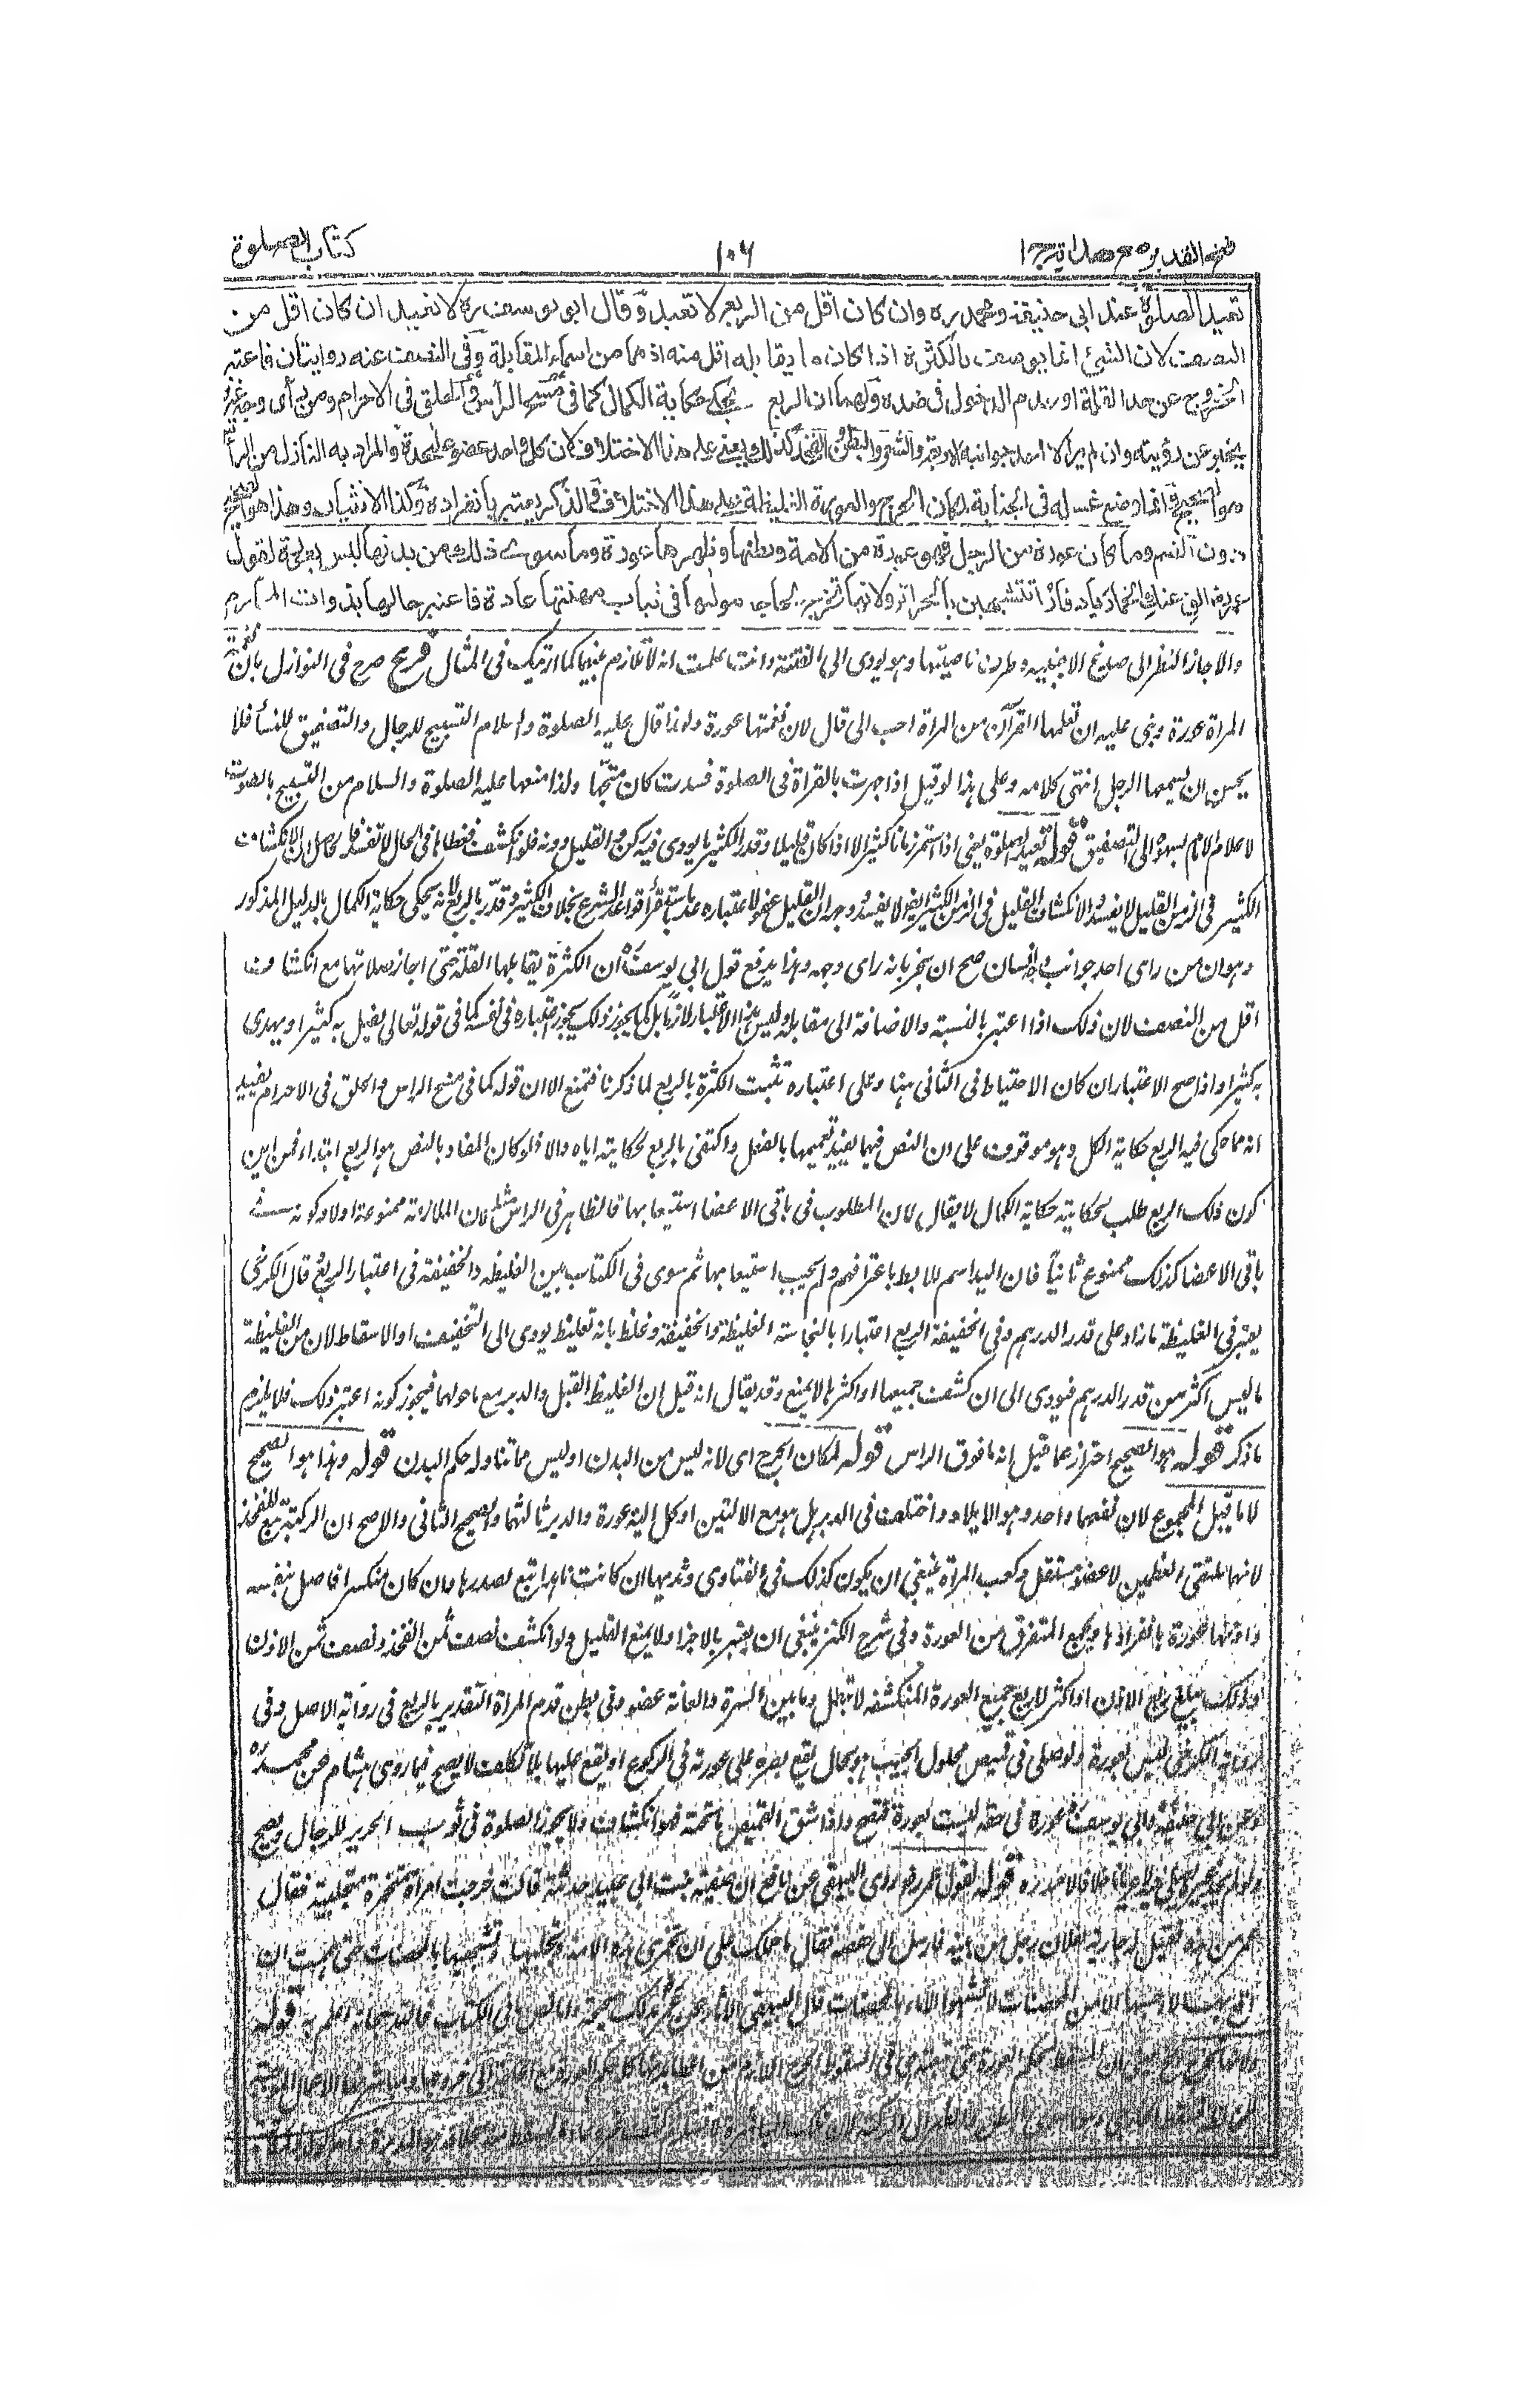 فتح القدير مع هداية ج ١
١٠٦
كتاب الصلوة
تعيد الصلوة عند ابى حنيفة ومحمد ره وان كان اقل من الربع لا تعيد وقال ابو يوسف ره لا تعيد ان كان اقل من
النصف لان الشئ انما يوصف بالكثرة اذا كان ما يقابله اقل منه اذ هما من اسماء المقابلة وفى النصف عنه روايتان فاعتبر
الخروج عن حد القلة او عدم الدخول فى ضده ولهما ان الربع يحكى حكاية الكمال كما فى مسح الرأس والحلق فى الاحرام ومن رأى وجه غيره
يخبر عن رؤيته وان لم ير الا احد جوانبه الاربعة والشعر والبطن والفخذ كذلك يعنى على هذا الاختلاف لان كل واحد عضو على حدة والمراد به النازل من الرأس
هو الصحيح وانما وضع غسله فى الجنابة لمكان الحرج والعورة الغليظة على هذا الاختلاف والذكر يعتبر بانفراده وكذا الانثيان وهذا هو الصحيح
دون الضم وما كان عورة من الرجل فهو عورة من الامة وبطنها وظهرها عورة وما سوى ذلك من بدنها ليس بعورة لقول
عمر رض الق عنك الخمار يا دفار اتتشبهين بالحرائر ولانها تخرج لحاجة مولها فى ثياب مهنتها عادة فاعتبر حالها بذوات المحارم
والا جاز النظر الى صدغ الاجنبية وطرف ناصيتها وهو يودى الى الفتنة وانت علمت انه لا تلازم بينهما كما اريتك فى المثال فرع صرح فى النوازل بان نغمة
المراة عورة وبنى عليه ان تعلمها القرآن من المراة احب الى قال لان نغمتها عورة ولهذا قال عليه الصلوة والسلام التسبيح للرجال والتصفيق للنسأ فلا
يحسن ان يسمعها الرجل انتهى كلامه وعلى هذا لو قيل اذا جهرت بالقراة فى الصلوة فسدت كان متجها ولذا منعها عليه الصلوة والسلام من التسبيح بالصوت
لاعلام الامام بسهوه الى التصفيق قوله تعيد الصلوة يعنى اذا استمر زمانا كثيرا لا اذا كان قليلا وقدر الكثير ما يودى فيه ركن والقليل دونه فلو انكشف فغطاها فى الحال لا تفسد فالحاصل ان الانكشاف
الكثير فى الزمن القليل لا يفسد والانكشاف القليل فى الزمن الكثير ايضا لا يفسد وجه ان القليل عفو لاعتباره عدما باستقرأ قواعد الشرع بخلاف الكثير وقدر بالربع لانه يحكى حكاية الكمال بالدليل المذكور
وهو ان من راى احد جوانب وجه انسان صح ان يخبر بانه راى وجهه وهذا يدفع قول ابى يوسف ره ان الكثرة يقابلها القلة حتى اجاز صلاتها مع انكشاف
اقل من النصف لان ذلك اذا اعتبر بالنسبة والاضافة الى مقابله وليس هذا الاعتبار لازما بل كما يجوز ذلك يجوز اعتباره فى نفسه كما فى قوله تعالى يضل به كثيرا ويهدى
به كثيرا واذا صح الاعتباران كان الاحتياط فى الثانى هنا وعلى اعتباره تثبت الكثرة بالربع لما ذكرنا فتمنع الا ان قوله كما فى مسح الراس والحلق فى الاحرام يفيد
انه مما حكى فيه الربع حكاية الكل وهو موقوف على ان النص فيهما يفيد تعميمها بالفعل واكتفى بالربع لحكايته اياه والا فلو كان المفاد بالنص هو الربع ابتداء فمن اين
كون ذلك الربع طلب لحكايته حكاية الكمال لا يقال لان المطلوب فى باقى الاعضا استيعابها فالظاهر فى الراس مثله لان الملازمة ممنوعة اولا وكونه فى
باقى الاعضا كذلك ممنوع ثانيا فان اليد اسم للابط باعترافهم ولم يجب استيعابها ثم سوى فى الكتاب بين الغليظه والخفيفة فى اعتبار الربع وقال الكرخى
يعتبر فى الغليظة ما زاد على قدر الدرهم وفى الخفيفة الربع اعتبارا بالنجاسة الغليظة والخفيفة وغلط بانه تغليظ يودى الى التخفيف او الاسقاط لان من الغليظة
ما ليس اكثر من قدر الدرهم فيودى الى ان كشف جميعها او اكثرها لا يمنع وقد يقال انه قيل ان الغليظ القبل والدبر مع ما حولهما فيجوز كونه اعتبر ذلك فلا يلزم
ما ذكر قوله هو الصحيح احتراز عما قيل انه ما فوق الراس قوله لمكان الحرج اى لانه ليس من البدن او ليس مما تناوله حكم البدن قوله وهذا هو الصحيح
لا ما قيل المجموع لان نفعهما واحد وهو الايلاد واختلف فى الدبر هل هو مع الاليتين او كل الية عورة والدبر ثالثهما والصحيح الثانى والاصح ان الركبة تبع للفخذ
لانها ملتقى العظمين لا عضو مستقل وكعب المراة ينبغى ان يكون كذلك فى الفتاوى وثديها ان كانت ناهدا تبع لصدرها وان كان منكسرا فاصل بنفسه
واذنها عورة بانفرادها ويجمع المتفرق من العورة وفى شرح الكنز ينبغى ان يعتبر بالاجزا ولا يمنع القليل ولو انكشف نصف ثمن الفخذ ونصف ثمن الاذن
وذلك يبلغ ربع الاذن او اكثر لا ربع جميع العورة المنكشفه لا تبطل وما بين السرة والعانة عضو وفى بطن قدم المراة التقدير بالربع فى رواية الاصل وفى
رواية الكرخى ليس بعورة ولو صلى فى قميص محلول الجيب وهو بحال يقع بصره على عورته فى الركوع او يقع عليها بلا تكلف لا يصح فيما روى هشام عن محمد ره
وعن ابى حنيفة وابى يوسف ره عورة فى حقه ليست بعورة فتصح واذا شق القميص فهو انكشاف ولا يجوز الصلوة فى ثوب الحرير للرجال ويصح
قوله لقول عمر رض روى البيهقى عن نافع ان صفية بنت ابى عبيد حدثته قالت خرجت امراة مختمرة متجلببة فقال
عمر من هذه فقيل له جارية لفلان رجل من بنيه فارسل الى حفصة فقال ما حملك على ان تخمرى هذه الامة وتجلببيها وتشبهيها بالمحصنات حتى هممت ان
اقع بها لا احسبها الا من المحصنات لا تشبهوا الاماء بالمحصنات قال البيهقى الاثار عن عمر بذلك صحيحة واما نص فى الكتاب فالله سبحانه اعلم به قوله